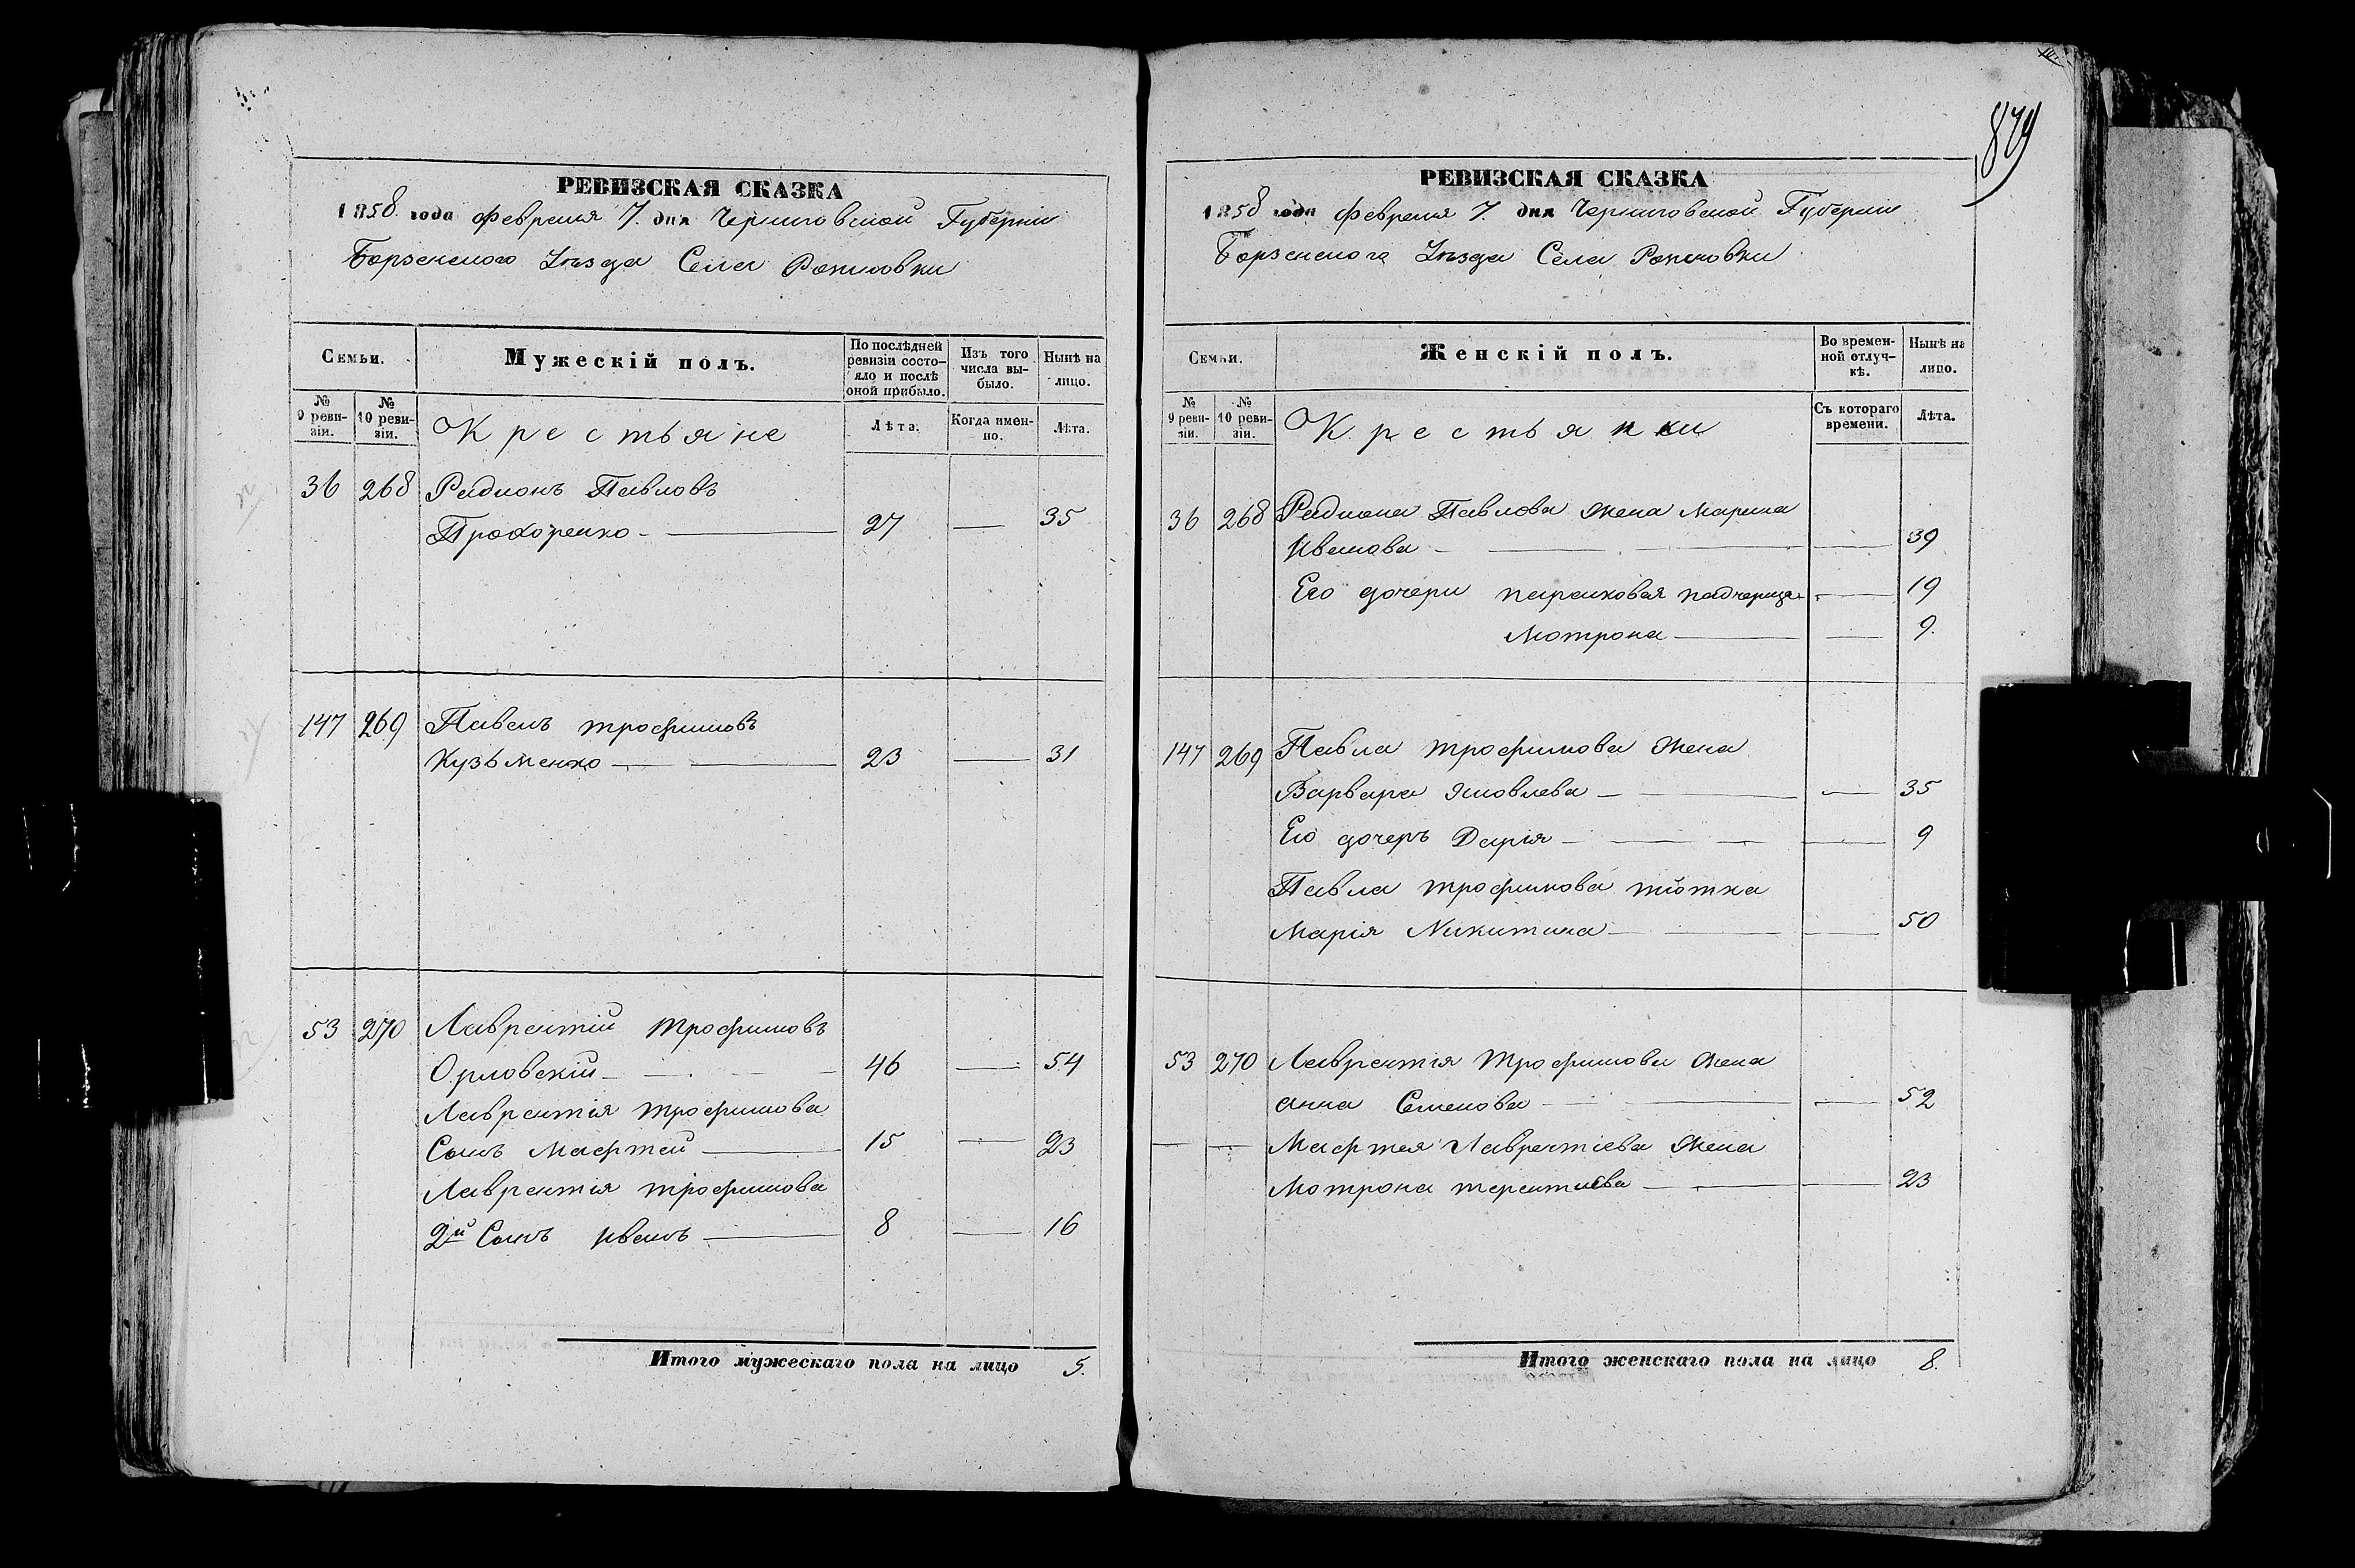 РЕВИЗСКАЯ СКАЗКА
1858 года Февраля 7. дня Черниговской Губерніи
Борзенского Уѣзда Села
Семьи.
Мужескій полъ.
По послѣдней ревизіи состояло и послѣ оной прибыло.
Изъ того числа выбыло.
Нынѣ на лицо.
№ 9 ревизіи.
№ 10 ревизіи.
Крестьяне
Лѣта.
Когда именно.
Лѣта.
36 268 Радионъ Павловъ
Прохоренко 27 — 35
147 269 Павелъ Трофимовъ
Кузьменко 23 — 31
53 270 Лаврентій Трофимовъ
Орловскій 46 — 54
Лаврентія Трофимова
Сынъ Мафтей 15 — 23
Лаврентія Трофимова
2й Сынъ Иванъ 8 — 16
Итого мужескаго пола на лицо 5.
879
РЕВИЗСКАЯ СКАЗКА
1858 года Февраля 7. дня Черниговской Губерніи
Борзенского Уѣзда Села
Семьи.
Женскій полъ.
Во временной отлучкѣ.
Нынѣ на лицо.
№ 9 ревизіи.
№ 10 ревизіи.
Крестьянки
Съ котораго времени.
Лѣта.
36 268 Радиона Павлова жена Марина
Иванова — 39
Его дочери падчерица — 19
Мотрона — 9.
147 269 Павла Трофимова жена
Варвара Яковлева — 35
Его дочерь Дарія — 9
Павла Трофимова тіотка
Марія Никитина — 50
53 270 Лаврентія Трофимова жена
Анна Семенова — 52
— — Мафтея Лаврентіева жена
Мотрона Терентиева — 23
Итого женскаго пола на лицо 8.